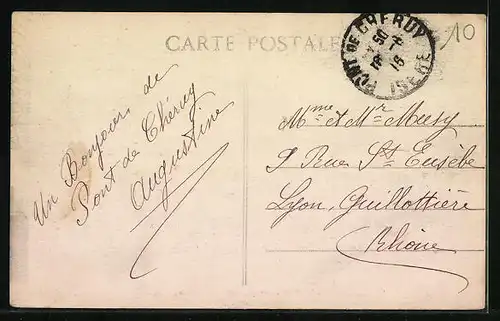 CARTE POSTALE
PONT DE CHERUY
ISERE
10
Un Bonjour de
Pont de Chéruy
Augustine
Mme et Mr Meesy
9 Rue St Eusèbe
Lyon, Guillottière
Rhône